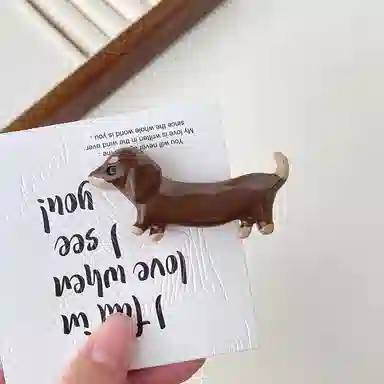 I fall in
love when
I see
you!
You will never
My love is written in the wind ever
since the whole world is you .